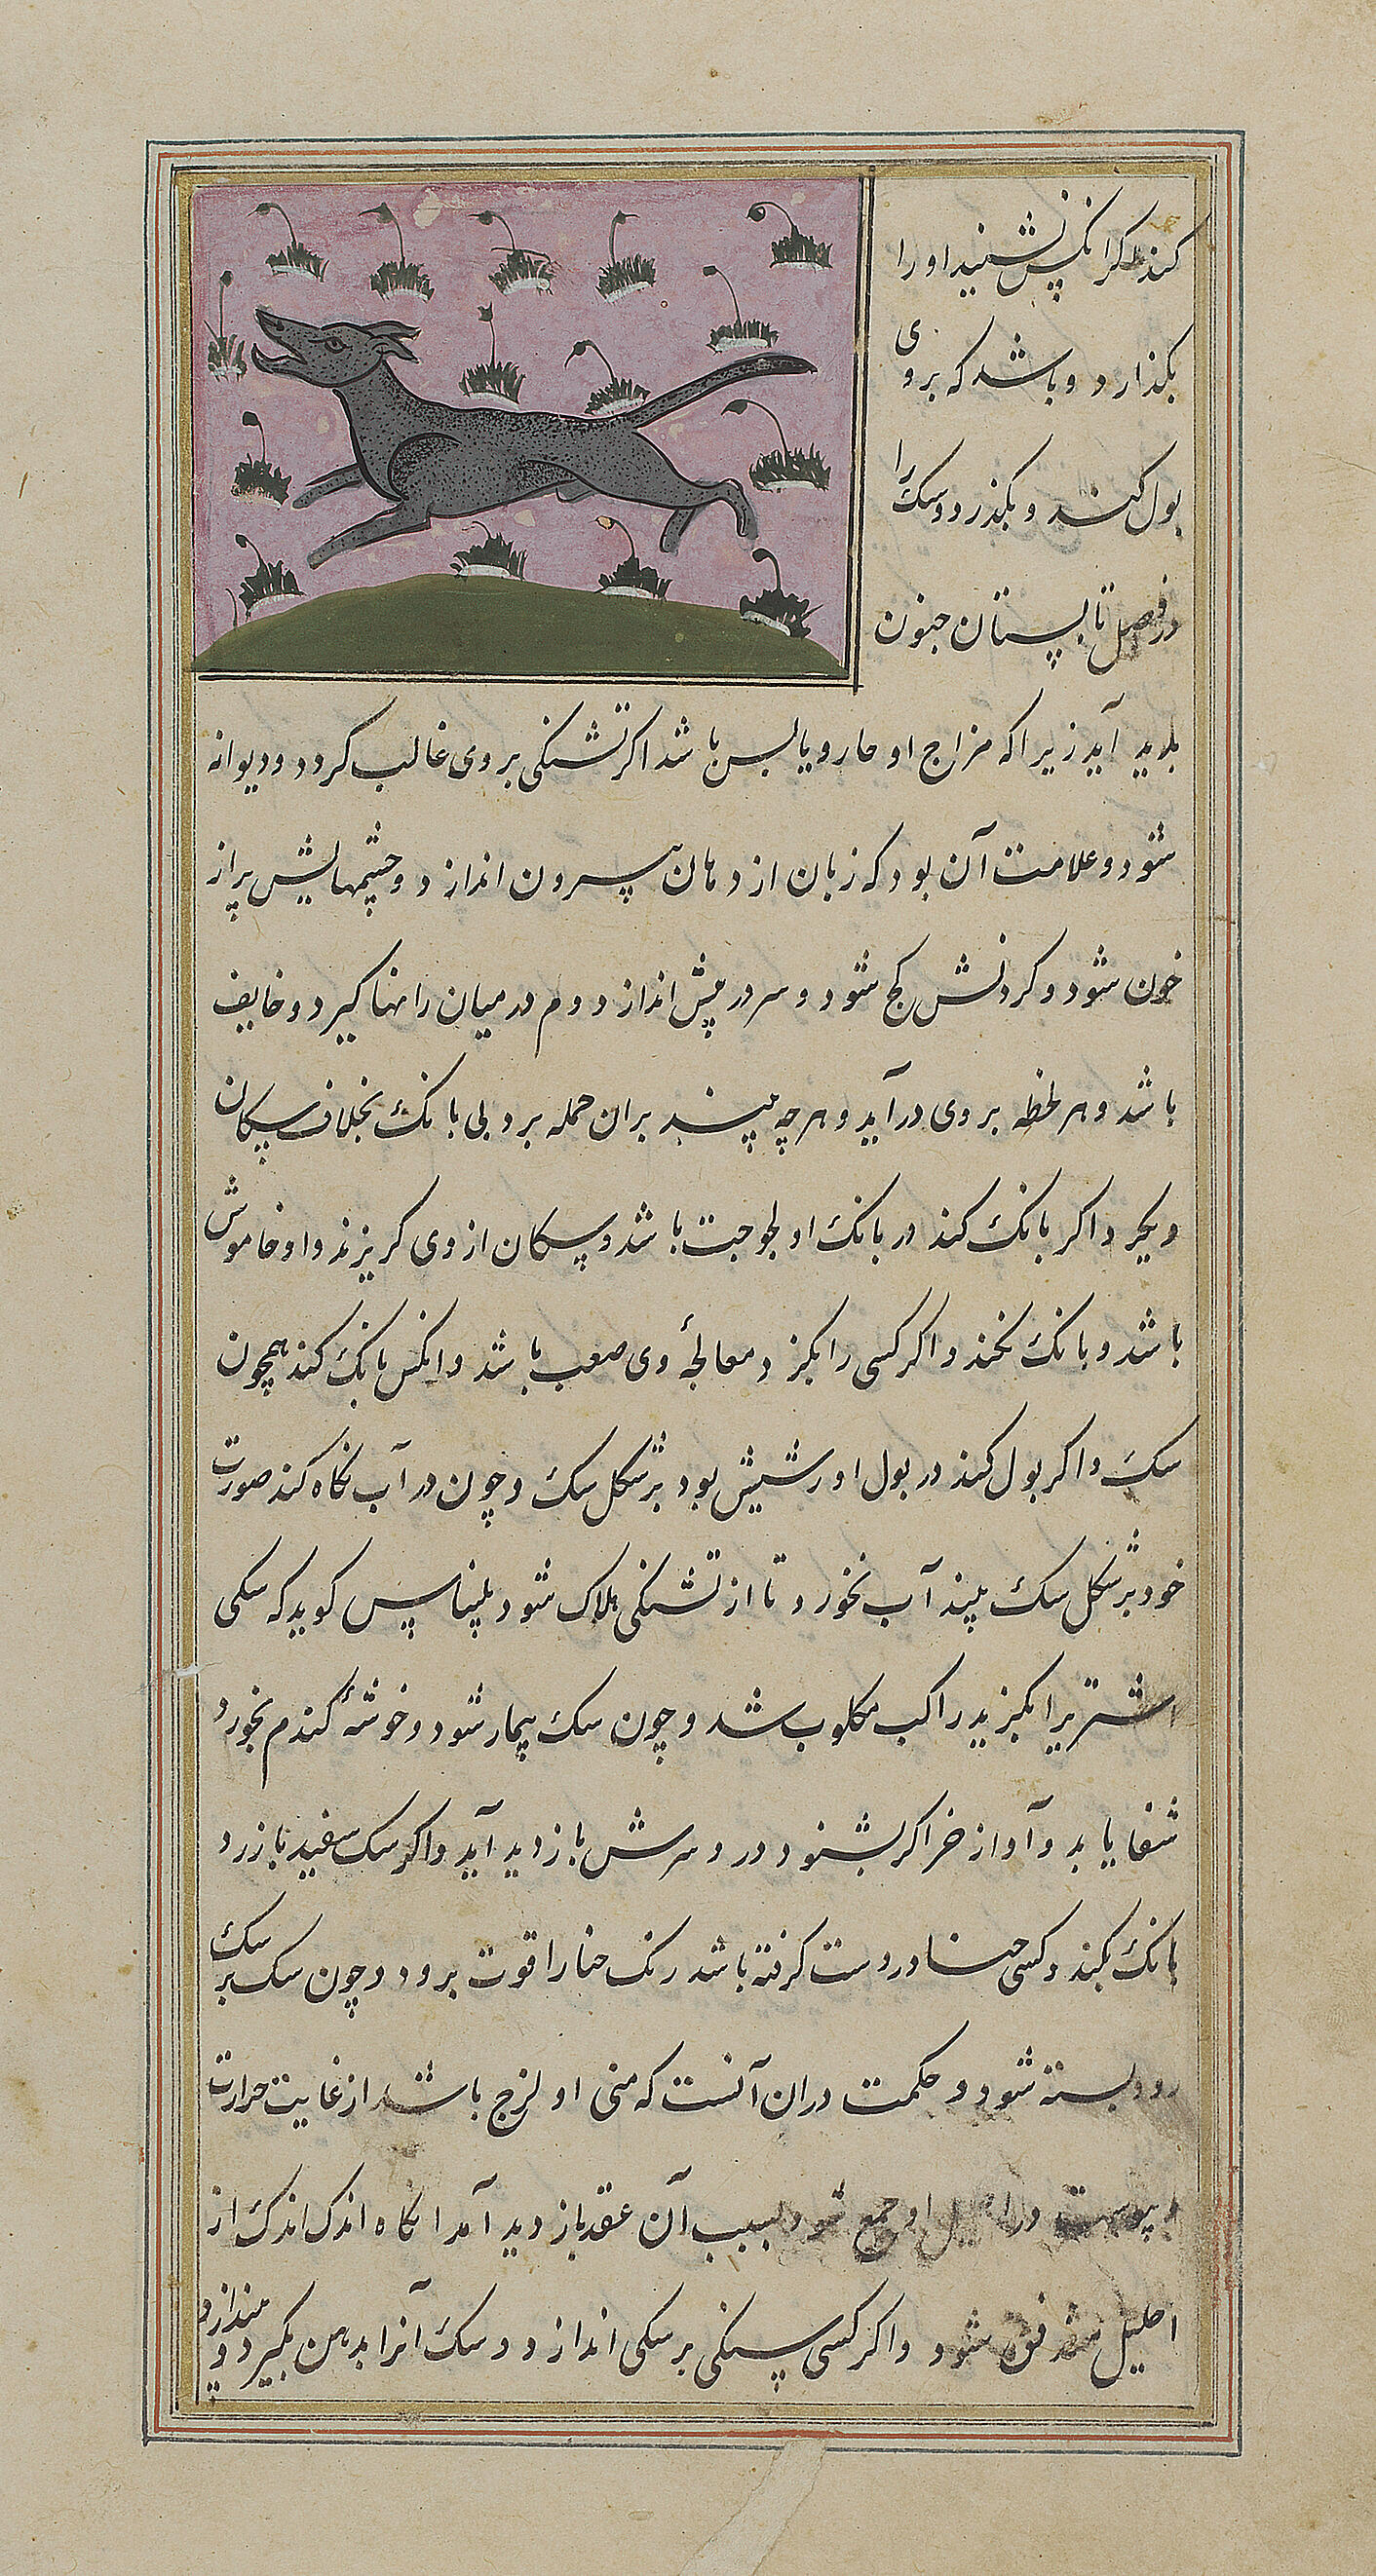 کند مکر انکس بنشیند او را
بکذارد و باشد که بر وی
بول کند و بکذرد و سک را
در فصل تابستان جنون
بدید آید زیرا که مزاج او حار و یابس باشد اکر تشنکی بر وی غالب کردد و دیوانه
شود و علامت آن بود که زبان از دهان بیرون اندازد و چشمهایش پر از
خون شود و کردنش کج شود و سر در پیش اندازد و دم در میان رانها کیرد و خایف
باشد و هر لحظه بر وی در آید و هر چه بیند بران حمله برد بی بانک بخلاف سکان
دیکر و اکر بانک کند در بانک او لجوجت باشد و سکان از وی کریزند و او خاموش
باشد و بانک نکند و اکر کسی را بکزد معالجهٔ وی صعب باشد و انکس بانک کند همچون
سک و اکر بول کند در بول او ریشش بود بر شکل سک و چون در آب نکاه کند صورت
خود بر شکل سک بیند آب نخورد تا از تشنکی هلاک شود بلیناس کوید که سکی
اشتریرا بکزید راکب مکلوب شد و چون سک بیمار شود و خوشهٔ کندم بخورد
شفا یابد و آواز خر اکر بشنود درد سرش بازدید آید و اکر سک سفید یا زرد
بانک کند و کسی حنا در دست کرفته باشد رنک حنا را قوت برود و چون سک بر سک
رود بسته شود و حکمت دران آنست که منی او لزج باشد از غایت حرارت
و یبوست در احلیل او جمع شود بسبب آن عقد بازدید آمد انکاه اندک اندک از
احلیل متدفق شود و اکر کسی سنکی بر سکی اندازد و سک آنرا بدهن بکیرد و بیندازد و